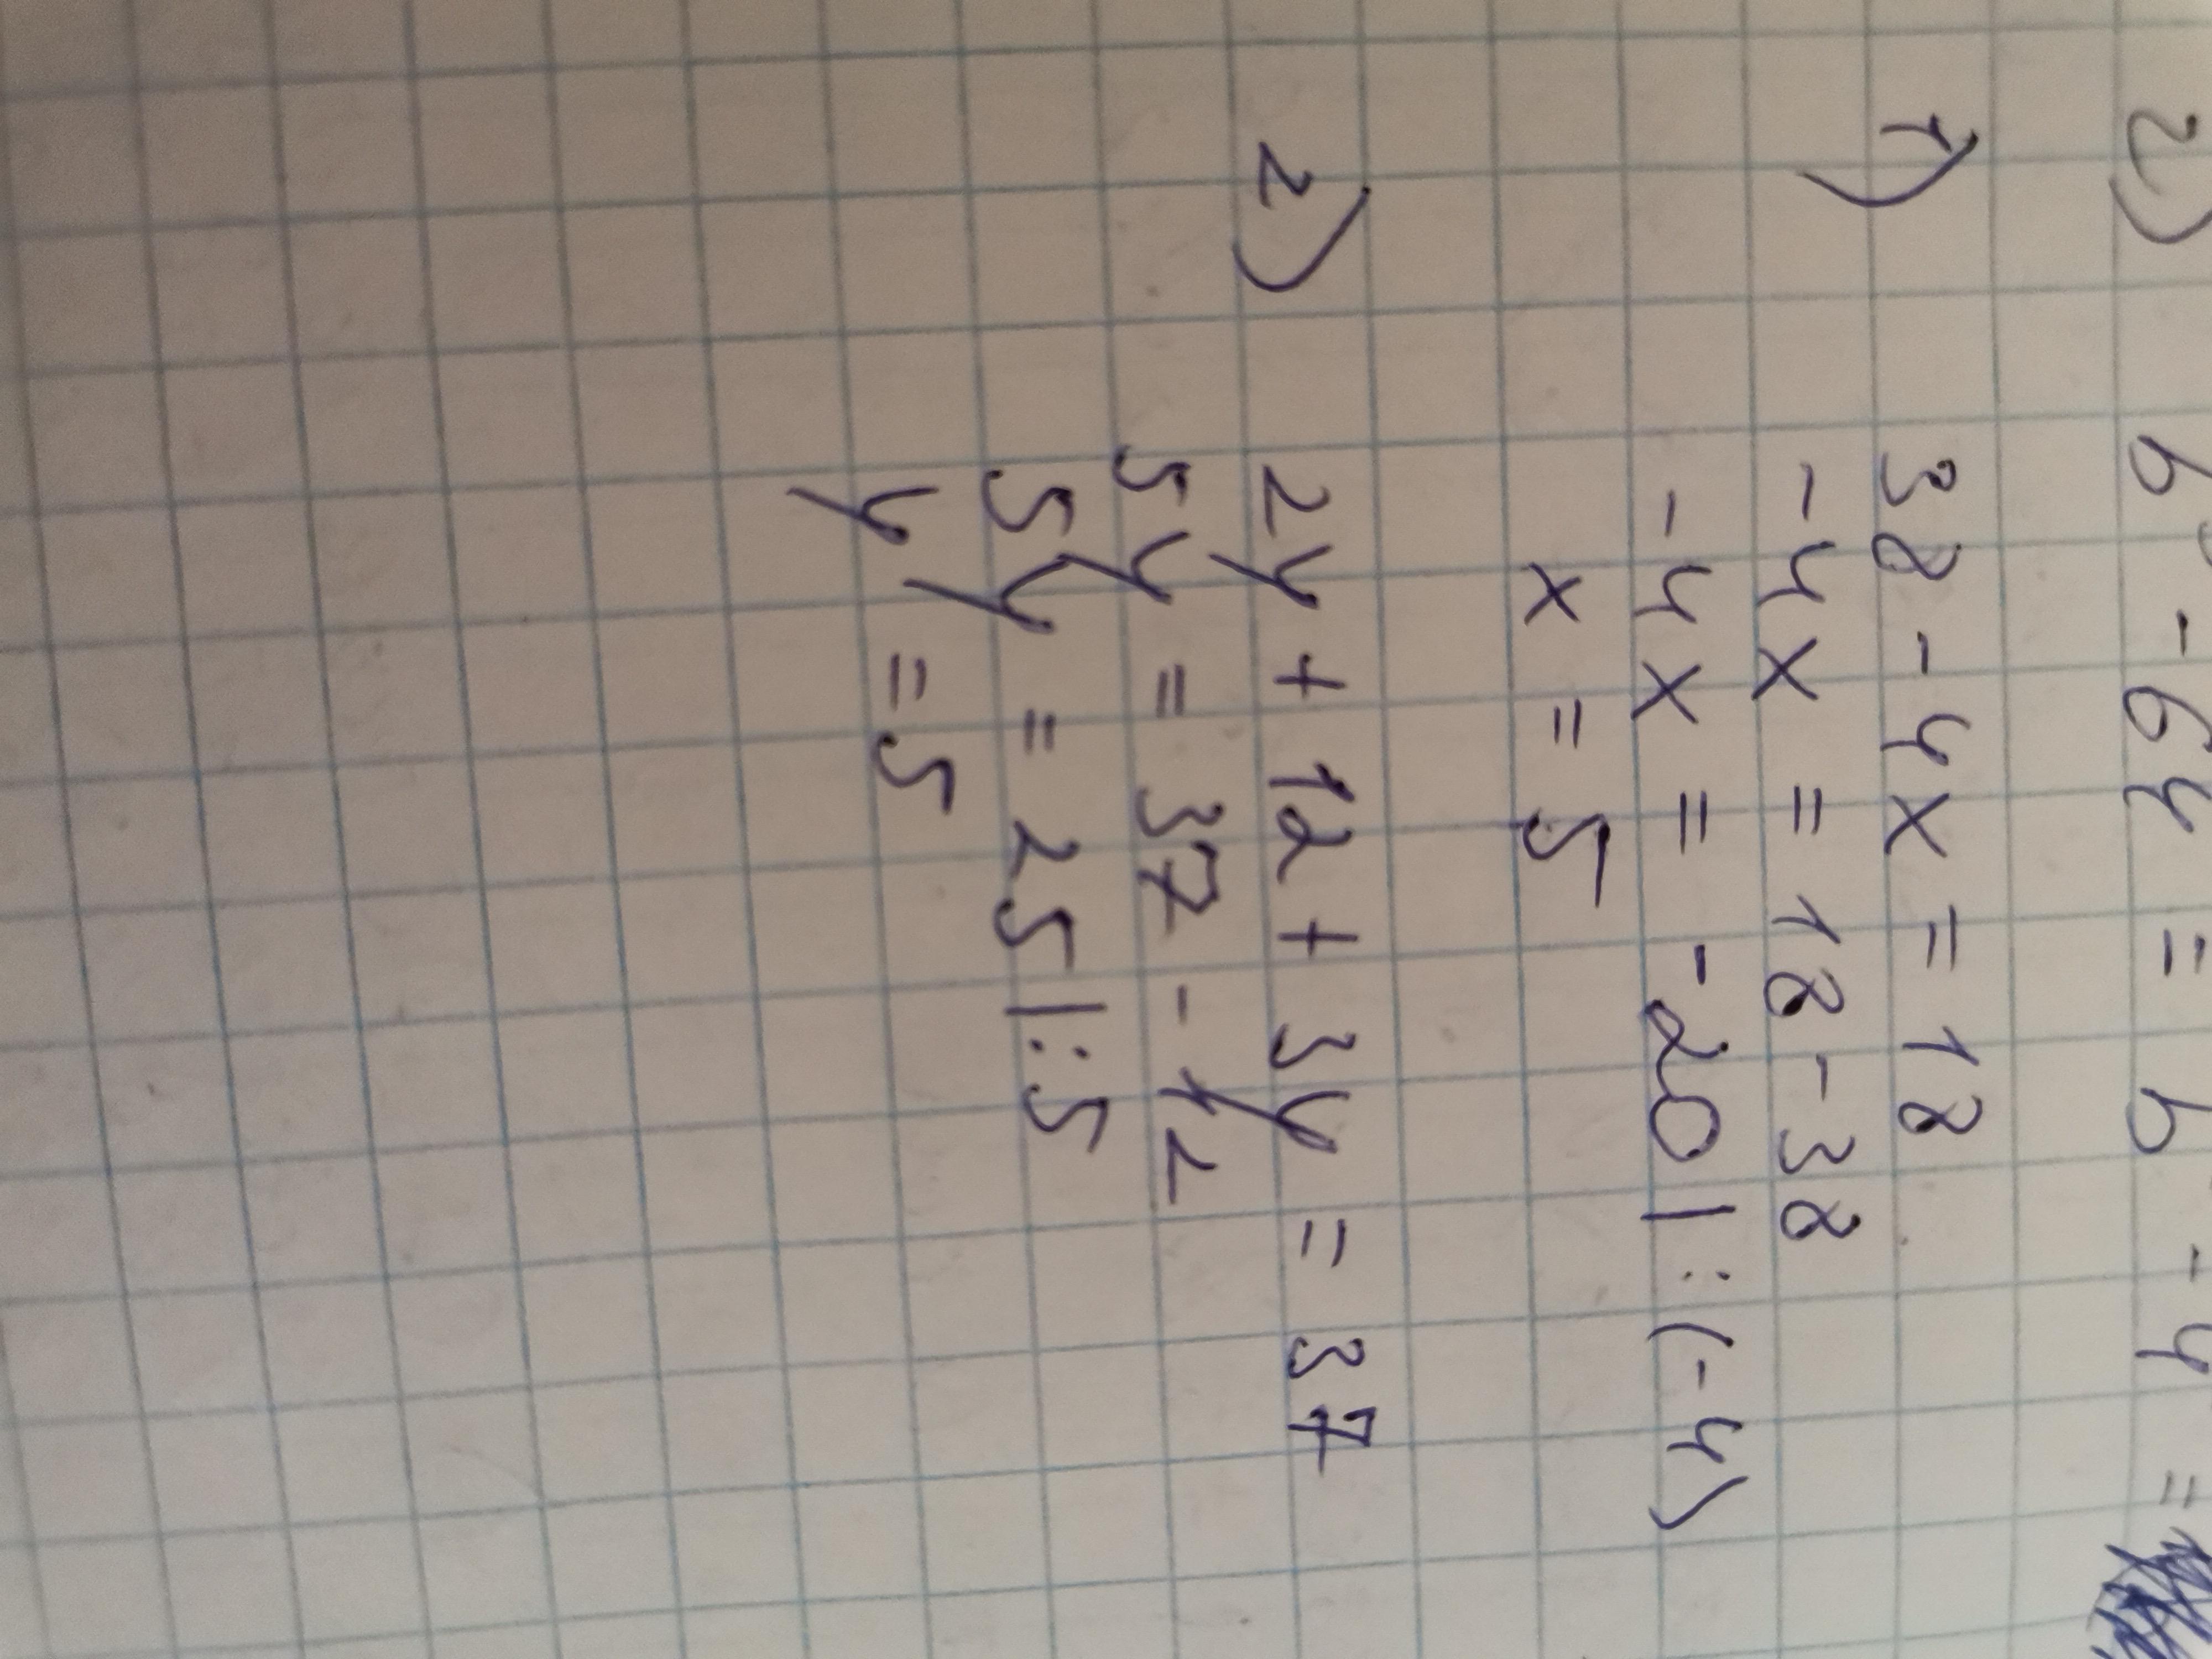 2) b³ - 64 = b - 4 =
1) 38 - 4x = 18
-4x = 18 - 38
-4x = -20 | : (-4)
x = 5
2) 2y + 12 + 3y = 37
5y = 37 - 12
5y = 25 | : 5
y = 5